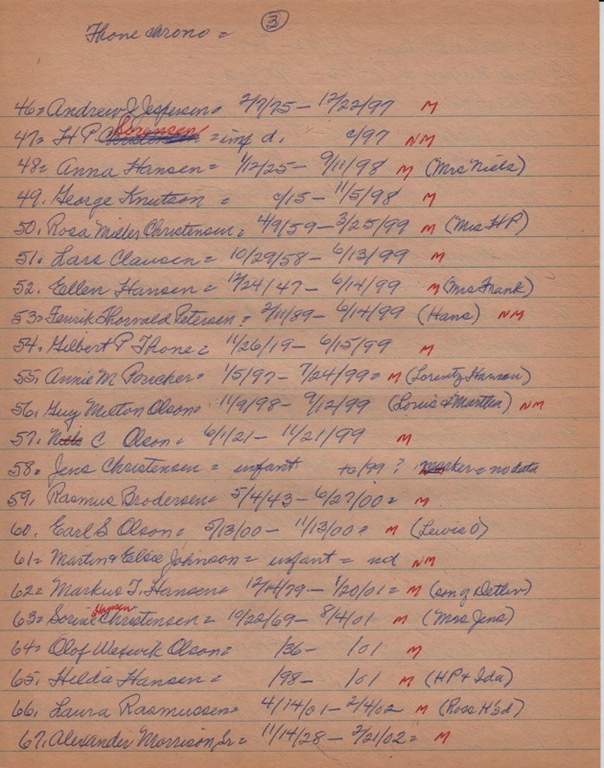 3
Thone chrono =
46= Andrew J Jespersen= 2/7/75 - 12/22/97 M
47= H P Sorensen = inf d. c/97 NM
48= Anna Hansen = 1/12/25 - 9/11/98 M (Mrs Niels)
49. George Knutson = c/15 - 11/5/98 M
50. Rosa Miller Christensen = 4/9/59 - 3/25/99 M (Mrs HP)
51. Lars Clausen = 10/29/58 - 6/13/99 M
52. Ellen Hansen = 12/24/47 - 6/14/99 M (Mrs Frank)
53= Henrik Thorvald Petersen = 2/11/89 - 6/14/99 (Hans) NM
54. Gilbert P Thone = 11/26/19 - 6/15/99 M
55. Annie M. = 1/5/97 - 7/24/99= M (Lorentz Hansen)
56. Guy Milton Olson= 11/9/98 - 9/12/99 (Louis & Martha) NM
57. C Olson = 6/1/21 - 11/21/99 M
58= Jens Christensen = infant to/99? = no data
59. Rasmus Brodersen= 5/4/43 - 6/27/00= M
60. Earl S Olson = 5/13/00 - 11/13/00= M (Lewis O)
61= Martin & Elsie Johnson = infant = nd NM
62= Markus T. Hansen= 12/14/79 - 1/20/01= M (son of Detlev)
63= Sorine Hansen Christensen = 10/22/69 - 8/4/01 M (Mrs Jens)
64= Olof Olson= /36- /01 M
65. Hilda Hansen = /98- /01 M (HP + Ida)
66. Laura Rasmussen= 4/14/01 - 2/4/02 M (Ross H'sd)
67. Alexander Morrison, Sr = 11/14/28 - 2/21/02= M